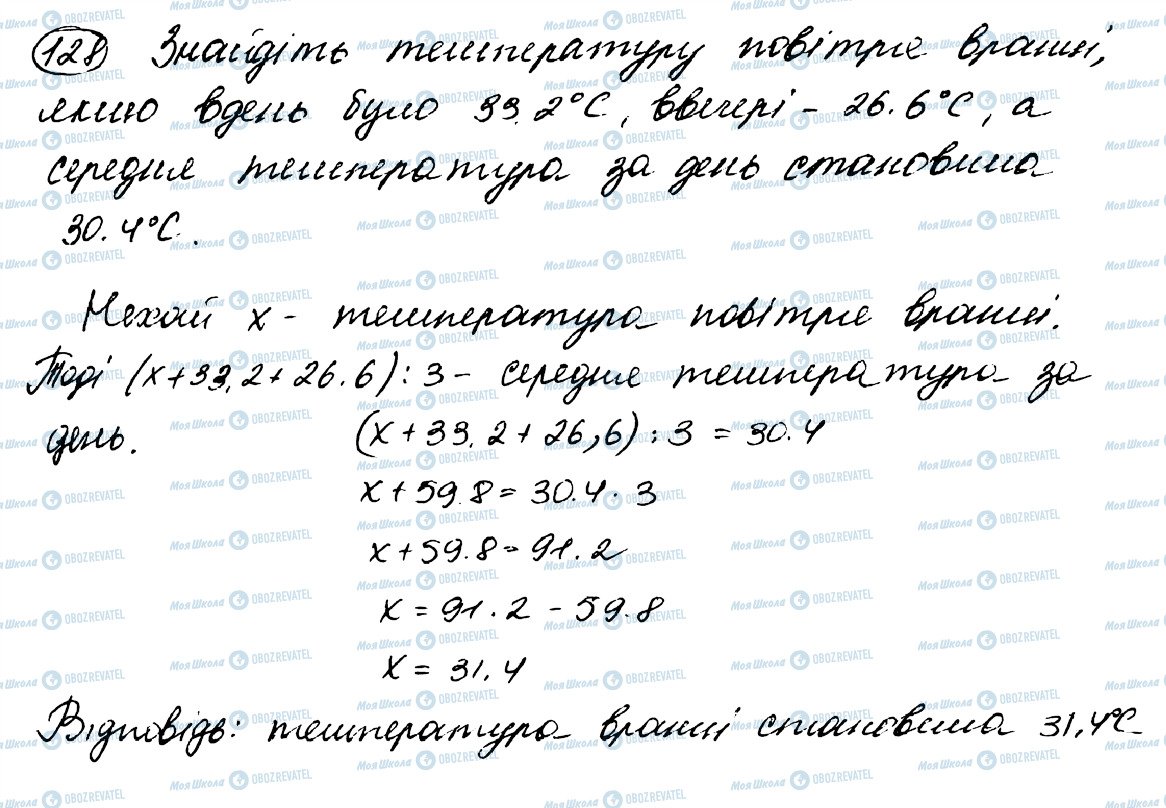 128 Знайдіть температуру повітря вранці,
якщо вдень було 33.2°C, ввечері - 26.6°C, а
середня температура за день становила
30.4°C.
Нехай x - температура повітря вранці.
Тоді (x+33,2+26.6):3 - середня температура за
день. (x+33.2+26,6):3 = 30.4
x+59.8=30.4·3
x+59.8=91.2
x=91.2-59.8
x=31.4
Відповідь: температура вранці становила 31,4°C